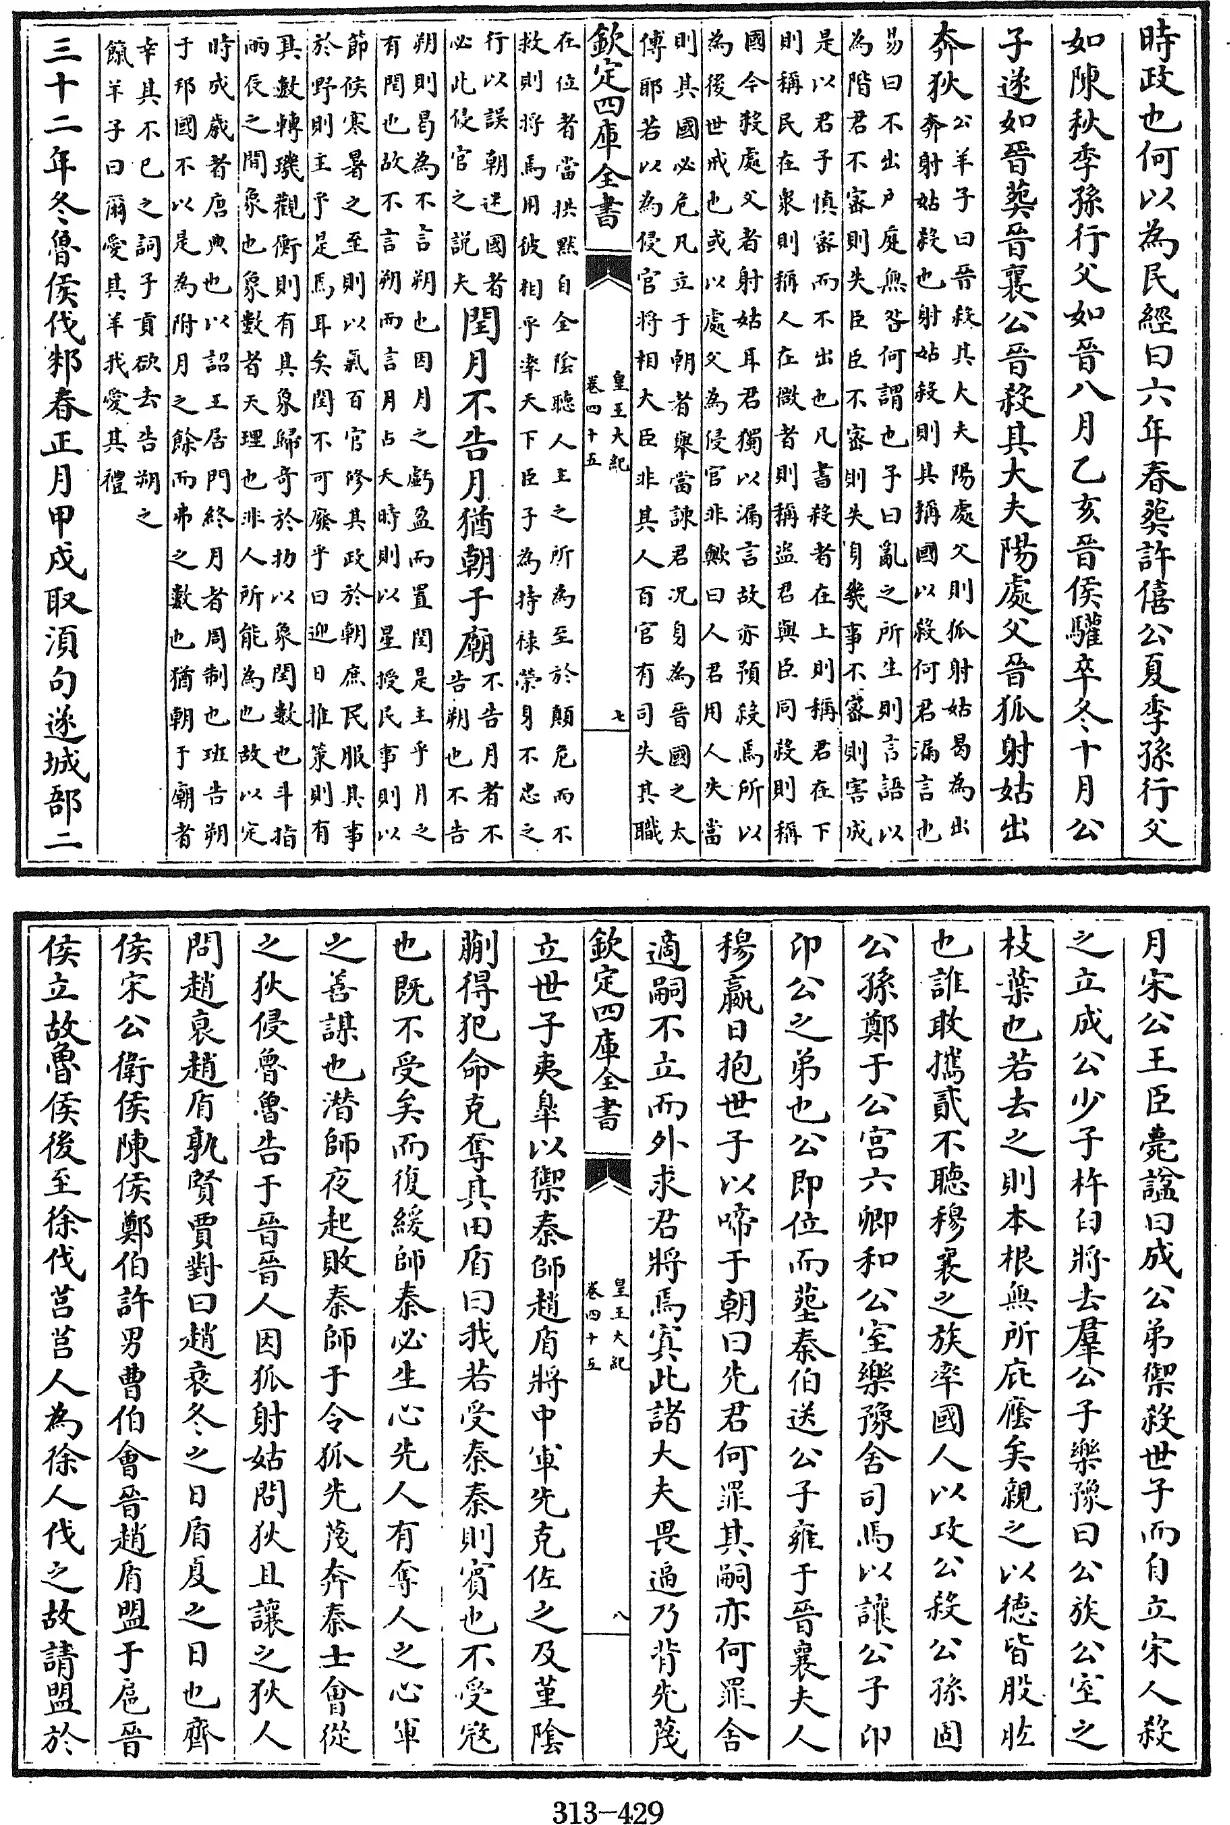 時政也何以為民經曰六年春葬許僖公夏季孫行父
如陳秋季孫行父如晉八月乙亥晉侯驩卒冬十月公
子遂如晉葬晉襄公晉殺其大夫陽處父晉狐射姑出
奔狄
公羊子曰晉殺其大夫陽處父則狐射姑曷為出
奔射姑殺也射姑殺則其稱國以殺何君漏言也
易曰不出户庭無咎何謂也子曰亂之所生則言語以
為階君不密則失臣臣不密則失身幾事不密則害成
是以君子慎密而不出也凡書殺者在上則稱君在下
則稱民在衆則稱人在微者則稱盜君與臣同殺則稱
國今殺處父者射姑耳君獨以漏言故亦預殺焉所以
為後世戒也或以處父為侵官非歟曰人君用人失當
則其國必危凡立于朝者舉當諫君况身為晉國之太
傅耶若以為侵官將相大臣非其人百官有司失其職
欽定四庫全書
皇王大紀
卷四十五
七
在位者當拱黙自全陰聽人主之所為至於顛危而不
救則將焉用彼相乎率天下臣子為持禄榮身不忠之
行以誤朝迷國者
必此侵官之説夫
閏月不告月猶朝于廟
不告月者不
告朔也不告
朔則曷為不言朔也因月之虧盈而置閏是主乎月之
有閏也故不言朔而言月占天時則以星授民事則以
節候寒暑之至則以氣百官修其政於朝庶民服其事
於野則主乎是焉耳矣閏不可廢乎曰迎日推策則有
其數轉璣觀衡則有其象歸奇於扐以象閏數也斗指
兩辰之間象也象數者天理也非人所能為也故以定
時成歲者唐典也以詔王居門終月者周制也班告朔
于邦國不以是為附月之餘而弗之數也猶朝于廟者
幸其不已之詞子貢欲去告朔之
餼羊子曰爾愛其羊我愛其禮
三十二年冬魯侯伐邾春正月甲戌取須句遂城郚二
月宋公王臣薨諡曰成公弟禦殺世子而自立宋人殺
之立成公少子杵臼將去羣公子樂豫曰公族公室之
枝葉也若去之則本根無所庇廕矣親之以德皆股肱
也誰敢攜貳不聽穆襄之族率國人以攻公殺公孫固
公孫鄭于公宮六卿和公室樂豫舍司馬以讓公子卬
卬公之弟也公即位而葬秦伯送公子雍于晉襄夫人
穆嬴日抱世子以啼于朝曰先君何罪其嗣亦何罪舍
適嗣不立而外求君將焉寘此諸大夫畏逼乃背先蔑
欽定四庫全書
皇王大紀
卷四十五
八
立世子夷臯以禦秦師趙盾將中軍先克佐之及堇陰
蒯得犯命克奪其田盾曰我若受秦秦則賓也不受寇
也既不受矣而復緩師秦必生心先人有奪人之心軍
之善謀也潜師夜起敗秦師于令狐先蔑奔秦士會從
之狄侵魯魯告于晉晉人因狐射姑問狄且讓之狄人
問趙衰趙盾孰賢賈對曰趙衰冬之日盾夏之日也齊
侯宋公衛侯陳侯鄭伯許男曹伯會晉趙盾盟于扈晉
侯立故魯侯後至徐伐莒莒人為徐人伐之故請盟於
313-429